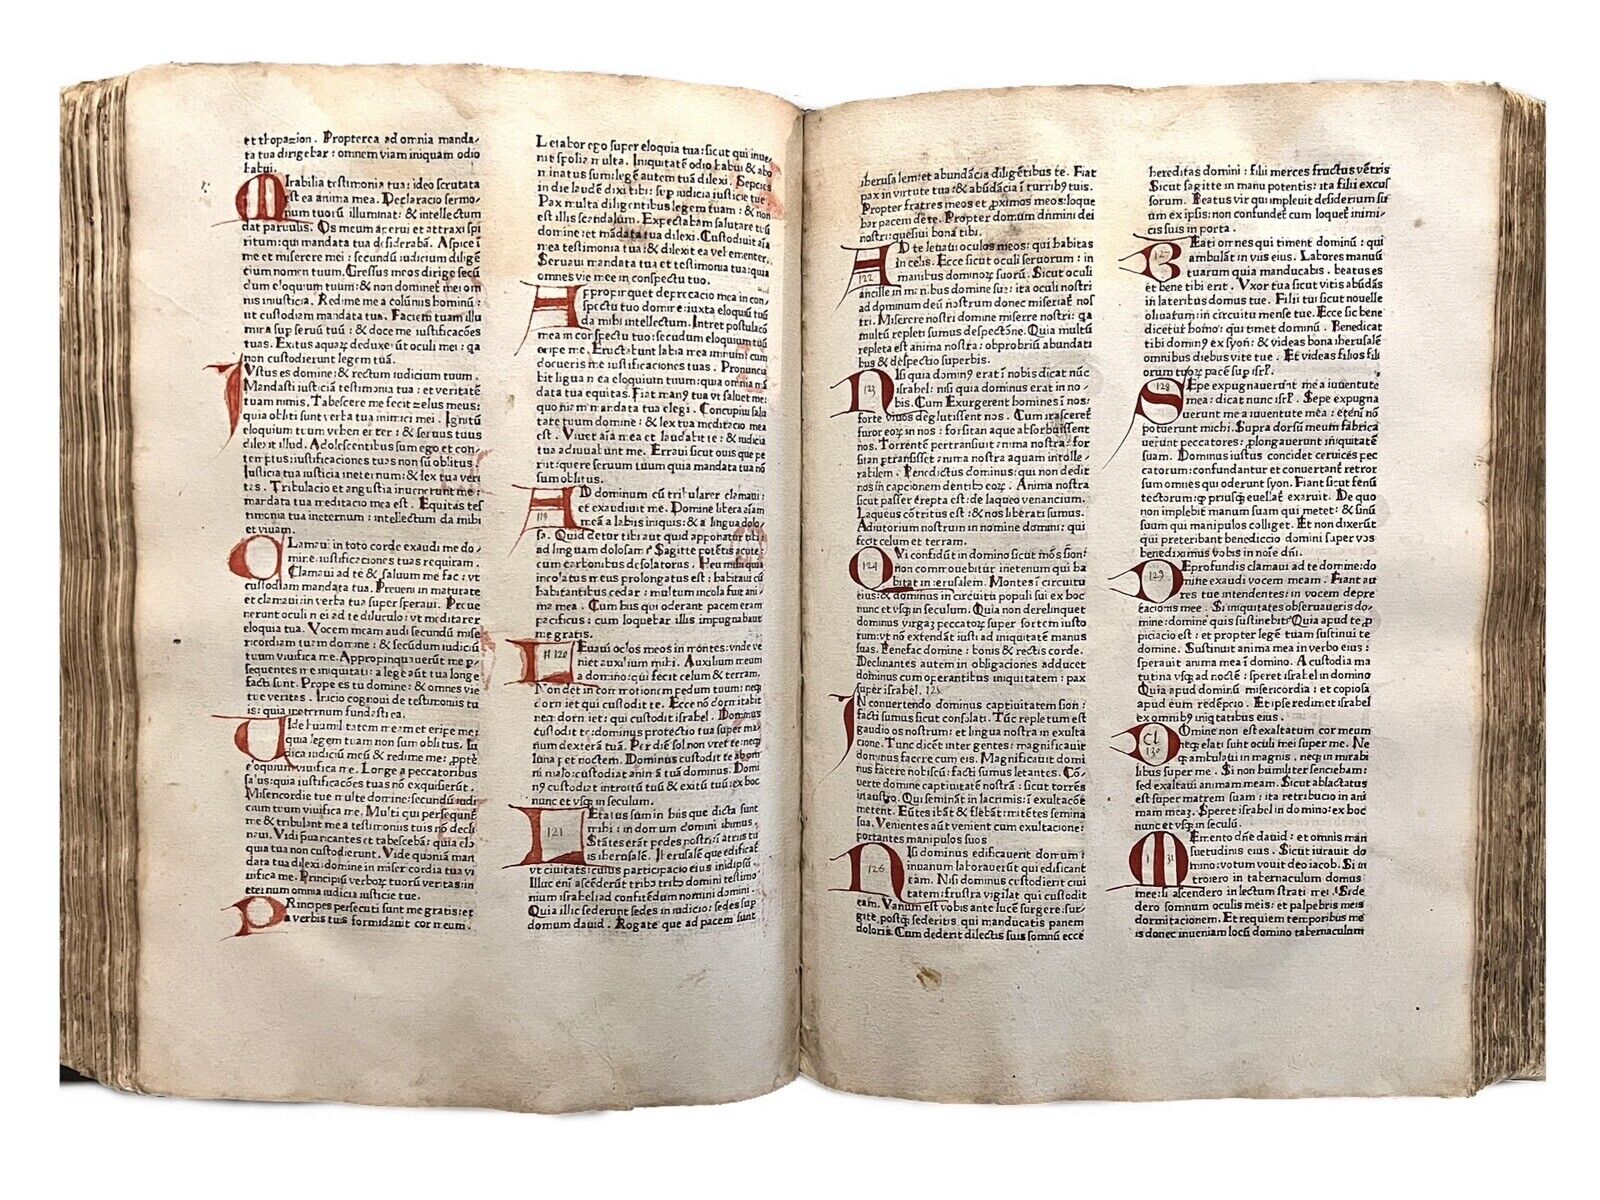 et thopazion. Propterea ad omnia manda/
ta tua dirigebar: omnem viam iniquam odio
habui.
MIrabilia testimonia tua: ideo scrutata
est ea anima mea. Declaracio sermo/
num tuorū illuminat: & intellectum
dat parvulis. Os meum aperui et attraxi spi
ritum: qui mandata tua desiderabā. Aspice ī
me et miserere mei: secundū iudicium diligē
tium nomen tuum. Gressus meos dirige secū
dum eloquium tuum: & non dominet mei om
nis iniusticia. Redime me a calūniis hominū:
ut custodiam mandata tua. Faciem tuam illu
mina sup servū tuū: & doce me iustificacões
tuas. Exitus aquaꝝ deduxerūt oculi mei: qa
non custodierunt legem tuā.
IVstus es domine: & rectum iudicium tuum.
Mandasti iusticiā testimonia tua: et veritatē
tuam nimis. Tabescere me fecit zelus meus:
quia obliti sunt verba tua inimici mei. Ignitū
eloquium tuum vehementer: & servus tuus
dilexit illud. Adolescentibus sum ego et con
temptus: iustificaciones tuas non sū oblitus.
Iusticia tua iusticia ineternum: & lex tua veri
tas. Tribulacio et angustia invenerunt me:
mandata tua meditacio mea est. Equitas tes
timonia tua ineternum: intellectum da mihi
et vivam.
CLamavi in toto corde exaudi me do/
mine: iustificaciones tuas requiram.
Clamavi ad te & salvum me fac: vt
custodiam mandata tua. Preveni in maturate
et clamavi: in verba tua super speravi. Preve
nerunt oculi mei ad te diluculo: vt meditarer
eloquia tua. Vocem meam audi secundū mise
ricordiam tuam domine: & secūdum iudiciū
tuum vivifica me. Appropinquaverūt me p/
sequentes me iniquitati: a lege aūt tua longe
facti sunt. Prope es tu domine: & omnes vie
tue veritas. Inicio cognovi de testimoniis tu
is: quia ineternum fundasti ea.
VIde humilitatem meam et eripe me:
quia legem tuam non sum oblitus. Iu
dica iudiciū meū & redime me: ppte
eloquium tuum vivifica me. Longe a peccatoribus
salus: quia iustificacões tuas nō exquiserūt.
Misericordie tue multe domine: secundū iudi
cium tuum vivifica me. Multi qui persequunt
me & tribulant me: a testimoniis tuis nō decli
navi. Vidi prevaricantes et tabescebā: quia elo
quia tua non custodierunt. Vide quoniā man
data tua dilexi: domine in misericordia tua vi
vifica me. Principiū verboꝝ tuorū veritas: in
eternum omnia iudicia iusticie tue.
PRincipes persecuti sunt me gratis: et
a verbis tuis formidavit cor meum.
Letabor ego super eloquia tua: sicut qui inve
nit spolia multa. Iniquitatē odio habui & abo
minatus sum: legē autem tuā dilexi. Sepcies
in die laudē dixi tibi: sup iudicia iusticie tue.
Pax multa diligentibus legem tuam: & non
est illis scandalum. Expectabam salutare tuū
domine: et mādata tua dilexi. Custodivit aīa
mea testimonia tua: & dilexit ea vehementer.
Servavi mandata tua et testimonia tua: quia
omnes vie mee in conspectu tuo.
APpropinquet deprecacio mea in con/
spectu tuo domine: iuxta eloquiū tuū
da mihi intellectum. Intret postulacō
mea in conspectu tuo: secundum eloquium tuū
eripe me. Eructabunt labia mea imnum: cum
docueris me iustificaciones tuas. Pronuncia
bit lingua mea eloquium tuum: quia omnia mā
data tua equitas. Fiat manꝰ tua vt salvet me:
quoniam mandata tua elegi. Concupivi salu
tare tuum domine: & lex tua meditacio mea
est. Vivet aīa mea et laudabit te: & iudicia
tua adiuvabunt me. Erravi sicut ovis que pe
riit: quere servum tuum quia mandata tua nō
sum oblitus.
AD dominum cū tribularer clamavi:
119 et exaudivit me. Domine libera aīam
meā a labiis iniquis: & a lingua dolo/
sa. Quid detur tibi aut quid apponatur tibi:
ad linguam dolosam? Sagitte potētis acute:
cum carbonibus desolatoriis. Heu mihi quia
incolatus meus prolongatus est: habitavi cū
habitantibus cedar: multum incola fuit ani/
ma mea. Cum hiis qui oderant pacem eram
pacificus: cum loquebar illis impugnabant
me gratis.
LEvavi oclos meos in montes: vnde ve
120 niet auxilium mihi. Auxilium meum
a domino: qui fecit celum & terram.
Non det in commotionem pedum tuum: neqꝫ
dormiet qui custodit te. Ecce nō dormitabit
neqꝫ dormiet: qui custodit israhel. Dominus
custodit te: dominus protectio tua super ma/
num dexterā tuā. Per diē sol non vret te: neqꝫ
luna per noctem. Dominus custodit te ab om
ni malo: custodiat animā tuā dominus. Domi
nꝰ custodiat introitū tuū & exitū tuū: ex hoc
nunc et vsqꝫ in seculum.
LEtatus sum in hiis que dicta sunt
121 mihi: in domum domini ibimus.
Stātes erāt pedes nostri: in atriis tu
is iherusalē. Iherusalē que edificat
vt civitas: cuius participacio eius inidipsū.
Illuc eni ascēderūt tribꝰ tribꝰ domini: testimo
nium israhel: ad confitēdum nomini domini.
Quia illic sederunt sedes in iudicio: sedes sup
domum david. Rogate que ad pacem sunt
iherusalem: et abundācia diligētibus te. Fiat
pax in virtute tua: & abūdācia ī turribꝰ tuis.
Propter fratres meos et pximos meos: loque
bar pacem de te. Propter domum dn̄mini dei
nostri: quesivi bona tibi.
AD te levavi oculos meos: qui habitas
122 in celis. Ecce sicut oculi servorum: in
manibus dominoꝝ suorū. Sicut oculi
ancille in manibus domine sue: ita oculi nostri
ad dominum deū nostrum donec misereat̄ nos
tri. Miserere nostri domine miserere nostri: qa
multū repleti sumus despectōne. Quia multū
repleta est anima nostra: obprobriū abundāti
bus & despectio superbis.
NIsi quia dominꝰ erat ī nobis dicat nūc
123 israhel: nisi quia dominus erat in no/
bis. Cum Exurgerent homines ī nos:
forte vivos deglutissent nos. Cum irasceret̄
furor eoꝝ in nos: forsitan aque absorbuissent
nos. Torrentē pertransivit anima nostra: for
sitan ptransisset anima nostra aquam intolle/
rabilem. Benedictus dominus: qui non dedit
nos in capcionem dentibꝰ eoꝝ. Anima nostra
sicut passer erepta est: de laqueo venancium.
Laqueus cōtritus est: & nos liberati sumus.
Adiutorium nostrum in nomine domini: qui
fecit celum et terram.
QVi confidūt in domino sicut mōs sion:
124 non commovebitur inetenum qui ha
bitat in iherusalem. Montes ī circuitu
eius: & dominus in circuitu populi sui ex hoc
nunc et vsqꝫ in seculum. Quia non derelinquet
dominus virgaꝫ peccatoꝝ super sortem iusto
rum: vt nō extendāt iusti ad iniquitatē manus
suas. Benefac domine: bonis & rectis corde.
Declinantes autem in obligaciones adducet
dominus cum operantibus iniquitatem: pax
super israhel. 125
IN convertendo dominus captivitatem sion:
facti sumus sicut consolati. Tūc repletum est
gaudio os nostrum: et lingua nostra in exulta
cione. Tunc dicēt inter gentes: magnificavit
dominus facere cum eis. Magnificavit domi
nus facere nobiscū: facti sumus letantes. Cō/
verte domine captivitatē nostrā: sicut torrēs
in austro. Qui semināt in lacrimis: ī exultacōe
metent. Eūtes ibāt & flebāt: mittētes semina
sua. Venientes aūt venient cum exultacione:
portantes manipulos suos
NIsi dominus edificaverit domum: ī
126 inuanum laboraverūt qui edificant
eam. Nisi dominus custodierit civi
tatem: frustra vigilat qui custodit
eam. Vanum est vobis ante lucē surgere: sur/
gite postqꝫ sederitis, qui manducatis panem
doloris. Cum dederit dilectis suis somnū ecce
hereditas domini: filii merces fructus vētris
Sicut sagitte in manu potentis: ita filii excus
sorum. Beatus vir qui impleuit desiderium su
um ex ipsis: non confundet̄ cum loquet̄ inimi/
cis suis in porta.
BEati omnes qui timent dominū: qui
127 ambulāt in viis eius. Labores manuū
tuarum quia manducabis. beatus es
et bene tibi erit. Vxor tua sicut vitis abūdās
in lateribus domus tue. Filii tui sicut novelle
olivatum: in circuitu mense tue. Ecce sic bene
dicetut homo: qui timet dominū. Benedicat
tibi dominꝰ ex syon: & videas bona iherusalē
omnibus diebus vite tue. Et videas filios fili
orum tuoꝝ: pacē sup isrl̄.
SEpe expugnaverunt me a iuventute
128 mea: dicat nunc isrl̄. Sepe expugna
verunt me a iuventute mea: etenī nō
potuerunt michi. Supra dorsū meum fabrica
verunt peccatores: plongaverunt iniquitatē
suam. Dominus iustus concidet cervices pec
catorum: confundantur et convertant̄ retror
sum omnes qui oderunt syon. Fiant sicut fenū
tectorum: qꝫ priusqꝫ evellat̄ exaruit. De quo
non implebit manum suam qui metet: & sinū
suum qui manipulos colliget. Et non dixerūt
qui preteribant benediccio domini super vos
benediximus vobis in noīe dn̄i.
DEprofundis clamavi ad te domine: do
129 mine exaudi vocem meam. Fiant au
res tue intendentes: in vocem depre
cacionis mee. Si iniquitates observaveris do
mine: domine quis sustinebit? Quia apud te p/
piciacio est: et propter legē tuam sustinui te
domine. Sustinuit anima mea in verbo eius:
speravit anima mea ī domino. A custodia ma
tutina vsqꝫ ad noctē: speret israhel in domino
Quia apud dominū misericordia: et copiosa
apud eum redēpcio. Et ipse redimet israhel
ex omnibꝰ iniqitatibus eius.
DOmine non est exaltatum cor meum
Cl neqꝫ elati sunt oculi mei super me. Ne
130 qꝫ ambulavi in magnis, neqꝫ in mirabi
libus super me. Si non humiliter senciebam:
sed exaltavi animam meam. Sicut ablactatus
est super matrem suam: ita retribucio in ani
mam meam. Speret israhel in domino: ex hoc
nunc et vsqꝫ in seculū.
MEmento dn̄e david: et omnis man
131 suetudinis eius. Sicut iuravit do
mino: votum vovit deo iacob. Si in
troiero in tabernaculum domus
mee: si ascendero in lectum strati mei. Si de
dero somnum oculis meis: et palpebris meis
dormitacionem. Et requiem temporibus me
is donec inveniam locū domino tabernaculum